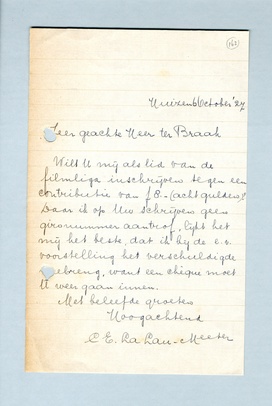 163
Huizen 6 October '27
Zeer geachte Heer ter Braak
Wilt U mij als lid van de
filmliga inschrijven tegen een
contributie van f 8.- (acht gulden)?
Daar ik op Uw schrijven geen
gironummer aantrof, lijkt het
mij het beste, dat ik bij de e.v.
voorstelling het verschuldigde
meebreng, want een chèque moet
U weer gaan innen.
Met beleefde groeten
Hoogachtend
C E. La Lau-Meeter